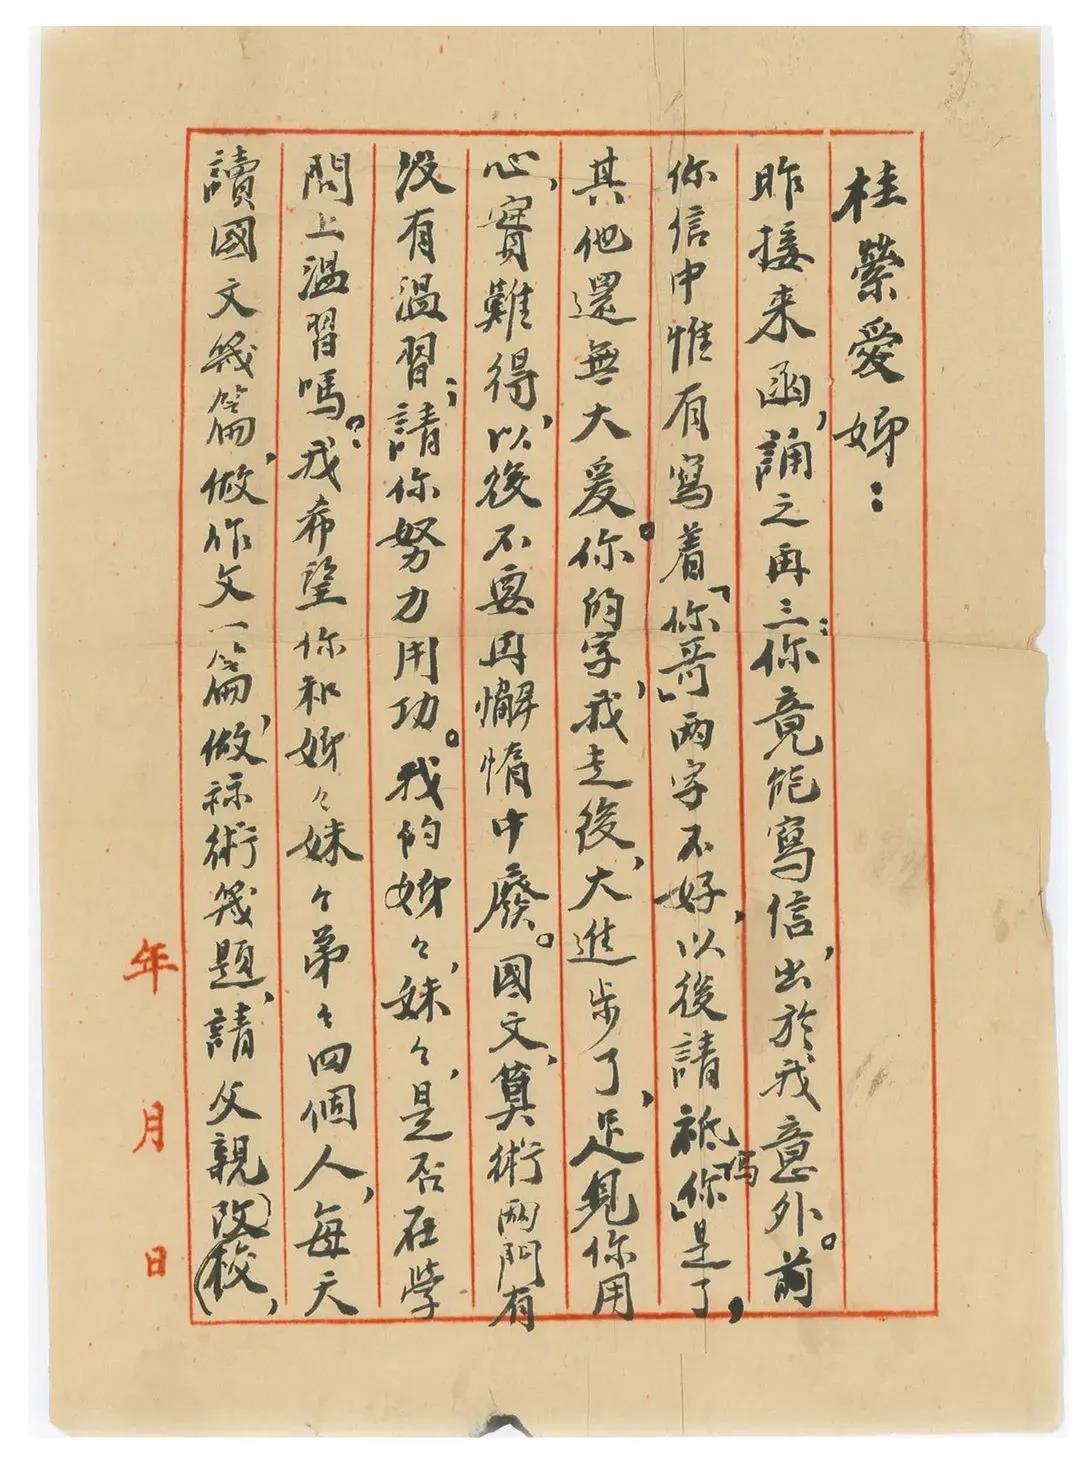 桂縈愛姊：
昨接来函，誦之再三：你竟能寫信，出於我意外。前
你信中惟有寫着「你哥」两字不好，以後請祗寫「你」是了，
其他還無大爰。你的字，我走後，大進步了，足見你用
心，實難得，以後不要再懈惰中廢。國文，算術两門有
没有溫習；請你努力用功。我的姊々，妹々，是否在学
問上溫習嗎？。我希望你和姊々妹々弟々四個人，每天
讀國文幾篇，做作文一篇，做祘術幾題，請父親改(校)，
年
月
日